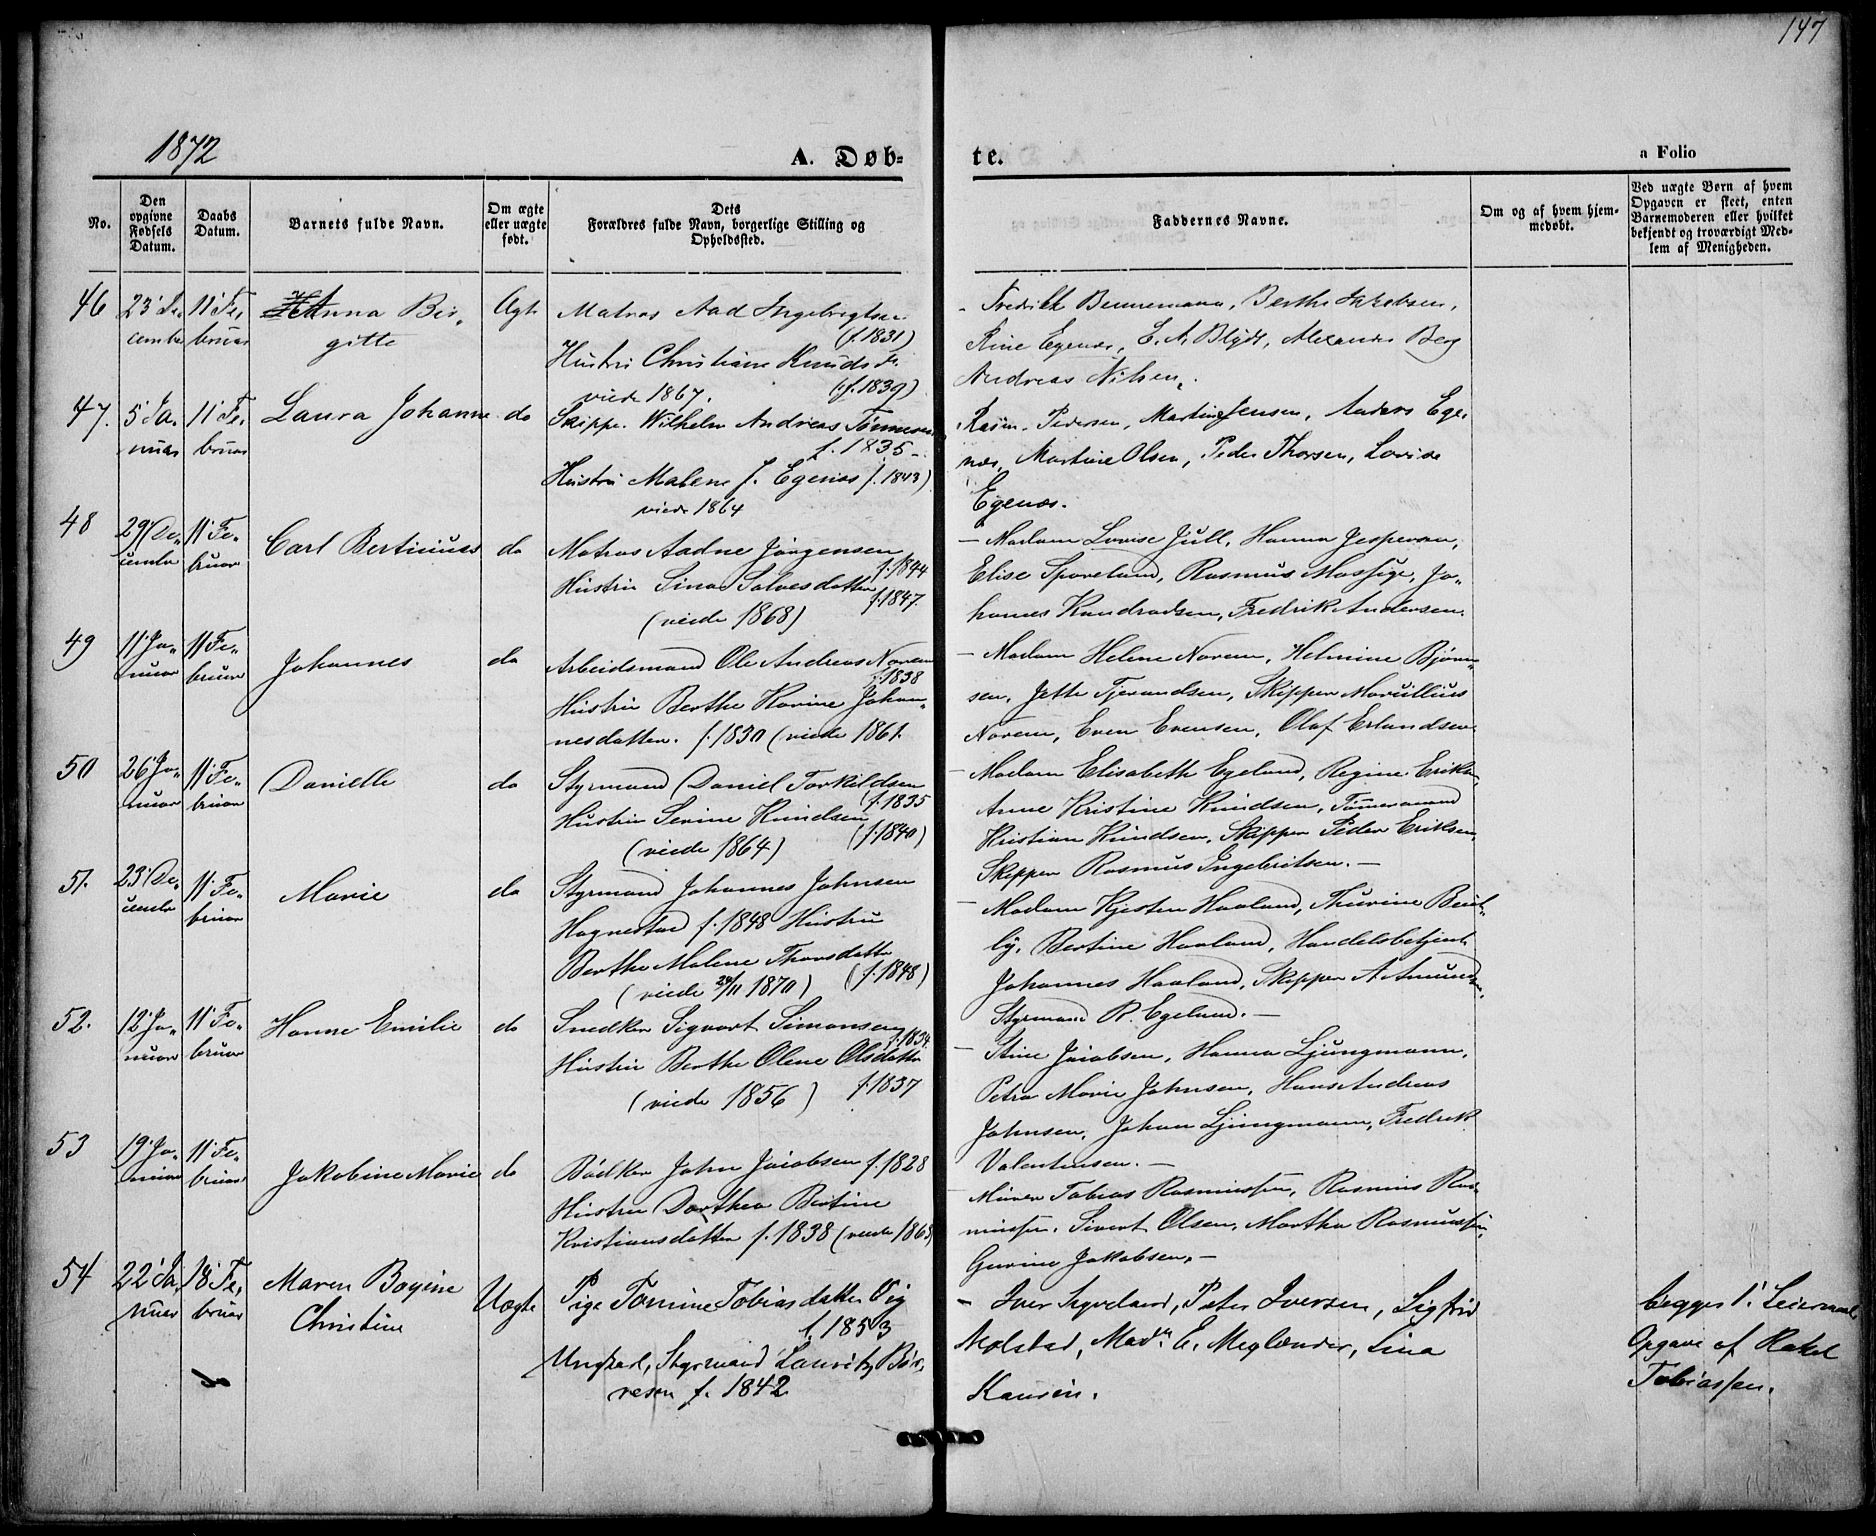 147
1872
A. Døb-
te.
a Folio
No.
Den
opgivne
Fødsels
Datum.
Daabs
Datum.
Barnets fulde Navn.
Om ægte
eller uægte
født.
Dets
Forældres fulde Navn, borgerlige Stilling og
Opholdssted.
Faddernes Navne.
Om og af hvem hjem-
medøbt.
Ved uægte Børn af hvem
Opgaven er skeet, enten
Barnemoderen eller hvilket
bekjendt og troværdigt Med-
lem af Menigheden.
46
23' De-
cember
11' Fe,
bruar
Anna Bir-
gitte
Ægte
Matros Aad Ingebrigtsen
(f. 1831)
Hustru Christiane Knudsdr
viede 1867. (f. 1839)
- Fredrikk Bennemann, Berthe Jakobsen,
Stine Egenæs, E. A. Blyde, Alexander Berg
Andreas Nilsen.
47.
5' Ja-
nuar
11' Fe,
bruar
Laura Johanne
do
Skipper Wilhelm Andreas Tønnesen
f. 1835 -
Hustru Malene J. Egenæs f. 1843)
viede 1864
Rasm. Pedersen, Martin Jensen, Anders Ege-
næs, Martine Olsen, Peder Thorsen, Lovise
Egenæs.
48
29' De-
cember
11' Fe-
bruar
Carl Bertinius
do
Matros Aadne Jørgensen
f. 1844
Hustru Sina Salvesdatter
f. 1847.
(viede 1868)
- Madam Lovise Jull, Hanna Jespersen,
Elise Spoveland, Rasmus Massige, Jo-
hannes Kundradsen, Fredrik Andersen.
49
11' Ja-
nuar
11' Fe-
bruar
Johannes
do
Arbeidsmand Ole Andreas Norem
f. 1838
Hustru Berthe Karine Johan-
nesdatter. f. 1830 (viede 1861.
- Madam Helene Norem, Helmine Bjørn-
sen, Jette Tjerandsen, Skipper Maruillius
Norem, Even Evensen, Olaf Erlandsen.
50
26' Ja-
nuar
11' Fe-
bruar
Danielle
do
Styrmand Daniel Torkildsen
(f. 1835
Hustru Serine Knudsen
(f. 1840)
(viede 1864)
- Madam Elisabeth Egeland, Regine Eriksen,
Anne Kristine Knudsen, Tømmermand
Kristian Knudsen, Skipper Peder Eriksen,
Skipper Rasmus Ingebritsen. -
51.
23' De-
cember
11' Fe-
bruar
Marie
do
Styrmand Johannes Johnsen
Hognestad f. 1848 Hustru
Berthe Malene Thorsdatter
(f. 1848)
(viede 24/11 1870)
- Madam Kjesten Haaland, Thurine
Bertine Haaland, Handelsbetjent
Johannes Haaland, Skipper A. Amundsen,
Styrmand R. Egeland. -
52.
12' Ja-
nuar
11' Fe-
bruar
Hanne Emilie
do
Snedker Sigvart Simonsen
f. 1834.
Hustru Berthe Olene Olsdatter
f. 1837
(viede 1856)
- Stine Jacobsen, Hanna Ljungmann,
Petra Marie Johnsen, Hans Andreas
Johnsen, Johan Ljungmann, Fredrik
Valentinsen. -
53
19' Ja-
nuar
11' Fe-
bruar
Jakobine Marie
do
Bødker John Jacobsen f. 1828
Hustru Dorthea Bertine
Kristiansdatter f. 1838 (viede 1863)
Murer Tobias Rasmussen, Rasmus Ras-
mussen, Sivert Olsen, Martha Rasmussen,
Gurine Jakobsen. -
54
22' Ja-
nuar
18' Fe,
bruar
Maren Bogine
Christine
Uægte
Pige Tomine Tobiasdatter Vig
f. 1853
Ungkarl, Styrmand Lauritz Bør-
resen f. 1842
- Iver Sigveland, Peter Iversen, Sigfrid
Molstad, Madm E. Meglænder, Lina
Hansen.
begges 1' Leiermaal
Opgave af Rakel
Tobiassen.